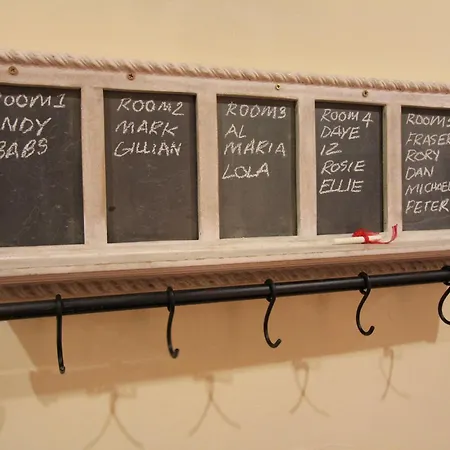 ROOM1
NDY
BABS
ROOM2
MARK
GILLIAN
ROOM3
AL
MARIA
LOLA
ROOM4
DAVE
IZ
ROSIE
ELLIE
ROOM5
FRASER
RORY
DAN
MICHAEL
PETER